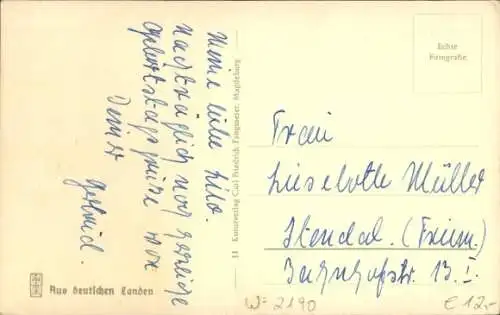 Meine liebe Lilo.
nachträglich noch herzliche
Geburtstagsgrüße von
Deiner
Gertrud.
Aus deutschen Landen
11 Kunstverlag Carl Friedrich Fangmeier, Magdeburg
Echte
Fotografie
Frau
Lieselotte Müller
Stendal.
Bahnhofstr. 13. I.
W-2190
€ 12,-